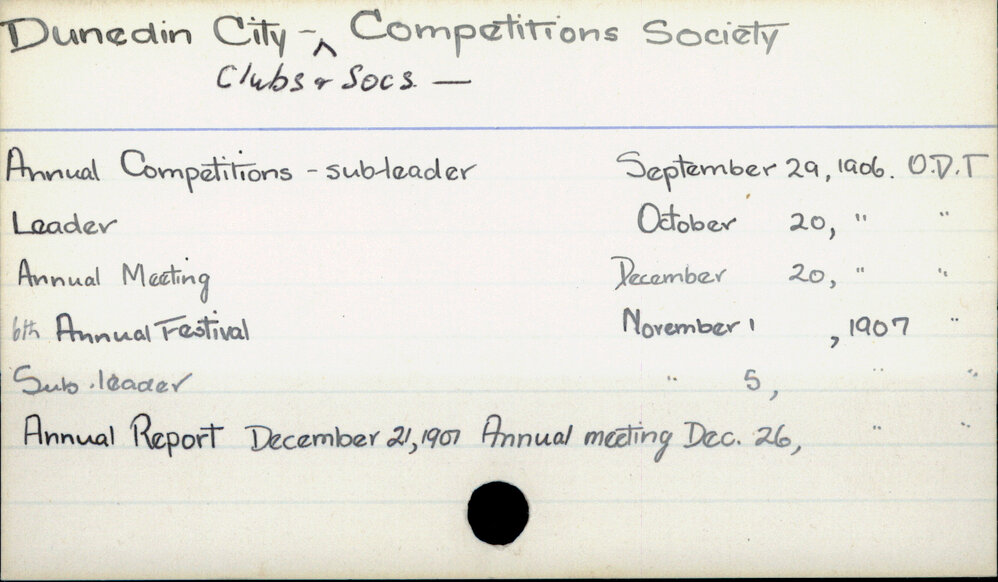 Dunedin City - ^ Competitions Society
Clubs & Socs. —
Annual Competitions - sub-leader September 29, 1906. O.D.T
Leader October 20, " "
Annual Meeting December 20, " "
6th Annual Festival November 1 , 1907 "
Sub.leader " 5, " "
Annual Report December 21, 1907 Annual meeting Dec. 26, " "